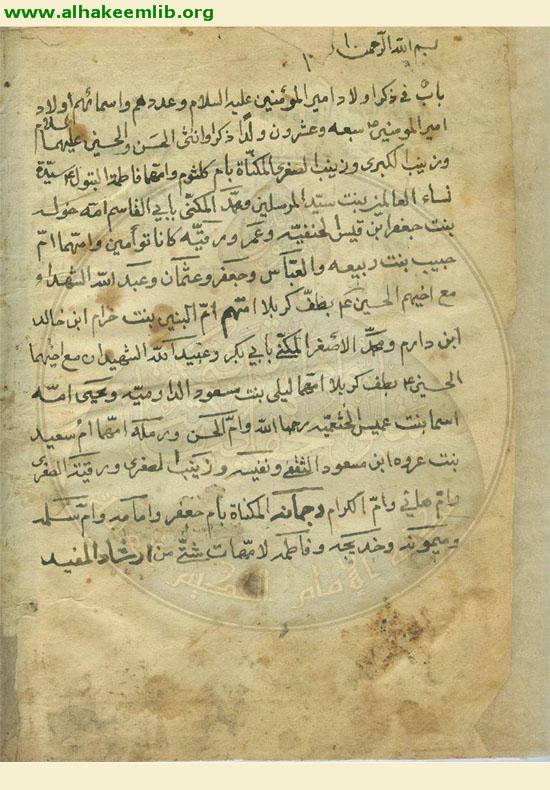 www.alhakeemlib.org
بسم الله الرحمن
باب في ذكر اولاد امير المؤمنين عليه السلام وعددهم واسمائهم اولاد
امير المؤمنين سبعه وعشرون ولدا ذكرا وانثى الحسن والحسين عليهما السلام
وزينب الكبرى وزينب الصغرى المكناة بام كلثوم وامهما فاطمة البتول ع سيدة
نساء العالمين بنت سيد المرسلين ومحمد المكنى بابي القاسم امه خوله
بنت جعفر ابن قيس الحنفيه وعمر ورقيه كانا توأمين وامهما ام
حبيب بنت ربيعه والعباس وجعفر وعثمان وعبد الله الشهداء
مع اخيهم الحسين ع بطف كربلا امهم ام البنين بنت حزام ابن خالد
ابن دارم ومحمد الاصغر المكنى بابي بكر وعبيد الله الشهيدان مع اخيهما
الحسين ع بطف كربلا امهما ليلى بنت مسعود الدارميه ويحيى امه
اسما بنت عميس الخثعميه رحمها الله وام الحسن ورمله امهما ام سعيد
بنت عروه ابن مسعود الثقفي ونفيسه وزينب الصغرى ورقية الصغرى
وام هاني وام الكرام وجمانه المكناة بام جعفر وامامه وام سلمه
وميمونه وخديجه وفاطمه لامهات شتى من ارشاد المفيد